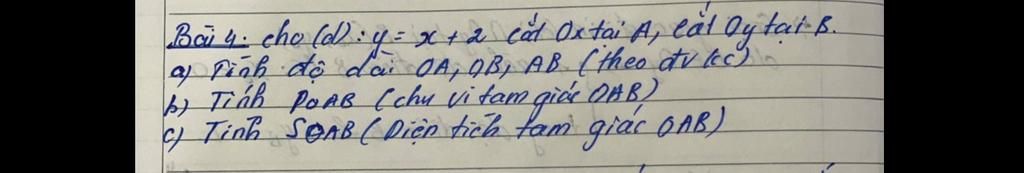 Bài 4: cho (d): y = x + 2 cắt Ox tại A, cắt Oy tại B.
a) Tính độ dài OA, OB, AB (theo đv kc)
b) Tính POAB (chu vi tam giác OAB)
c) Tính SOAB (Diện tích tam giác OAB)